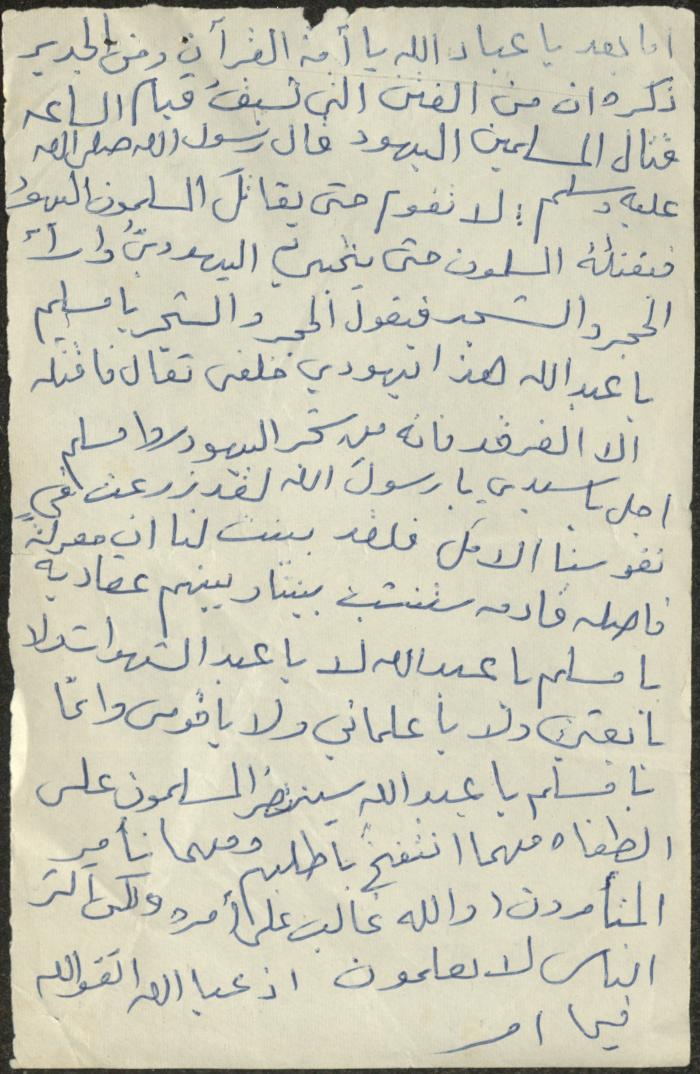 اما بعد يا عباد الله يا أمة القرآن ومن الجدير
ذكره ان من الفتن التي تسبق قيام الساعه
قتال المسلمين اليهود قال رسول الله صلى الله
عليه وسلم : لا تقوم حتى يقاتل المسلمون اليهود
فيقتلهُ المسلمون حتى يختبئ اليهوديُ وراء
الحجر والشجر فيقول الحجر والشجر يا مسلم
يا عبد الله هذا يهودي خلفي تعال فاقتله
الا الغرقد فانه من شجر اليهود رواه مسلم
اجل يا سيدي يا رسول الله لقد زرعت في
نفوسنا الامل فلقد بينت لنا ان معركة
فاصله قادمه ستنشب بيننا وبينهم عقاديه
يا مسلم يا عبد الله لا يا عبد الشهوات ولا
يا بعثي ولا يا علماني ولا يا قومي وانما
يا مسلم يا عبد الله سينتصر المسلمون على
الطغاه مهما انتفخ باطلهم ومهما تأمر
المتأمرون (والله غالب على أمره ولكن اكثر
الناس لا يعلمون اذ عباد الله اتقوا الله
فيما امر